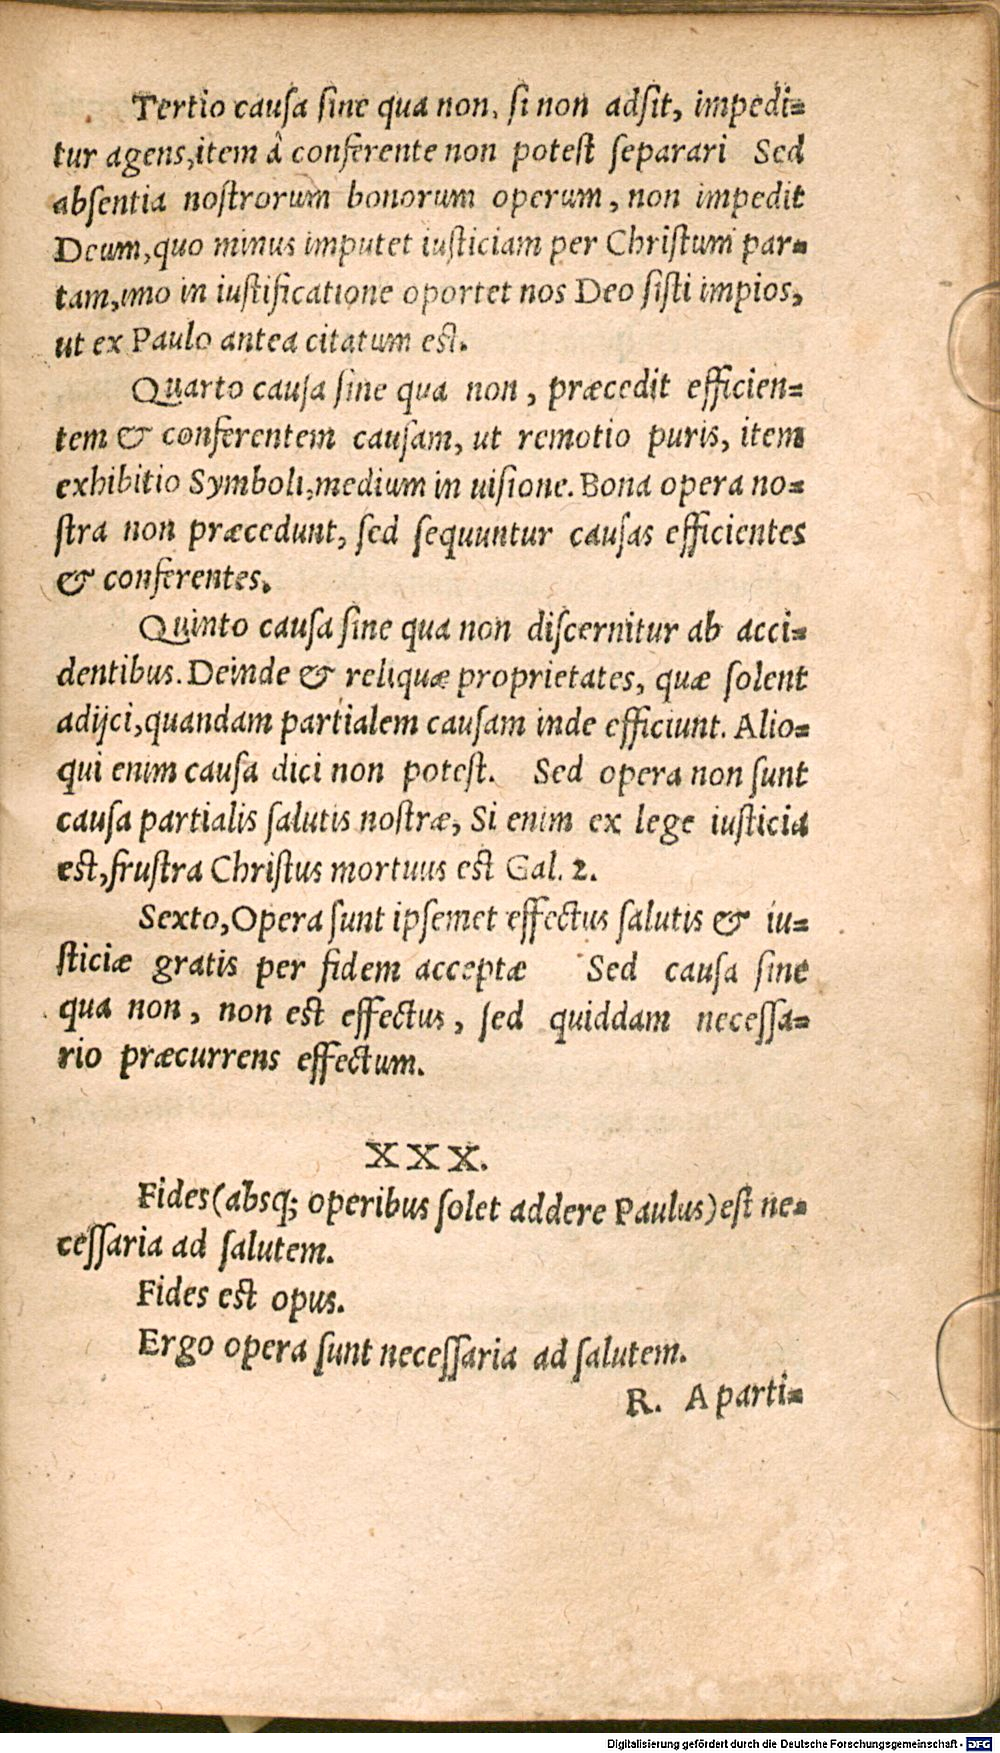 Tertio cauſa ſine qua non, ſi non adſit, impedi=
tur agens, item à conferente non poteſt ſeparari Sed
abſentia noſtrorum bonorum operum, non impedit
Deum, quo minus imputet iuſticiam per Chriſtum par=
tam, imo in iuſtificatione oportet nos Deo ſiſti impios,
ut ex Paulo antea citatum eſt.
Quarto cauſa ſine qua non, præcedit efficien=
tem & conferentem cauſam, ut remotio puris, item
exhibitio Symboli, medium in uiſione. Bona opera no=
ſtra non præcedunt, ſed ſequuntur cauſas efficientes
& conferentes.
Quinto cauſa ſine qua non diſcernitur ab acci=
dentibus. Deinde & reliquæ proprietates, quæ ſolent
adijci, quandam partialem cauſam inde efficiunt. Alio=
qui enim cauſa dici non poteſt. Sed opera non ſunt
cauſa partialis ſalutis noſtræ, Si enim ex lege iuſticia
eſt, fruſtra Chriſtus mortuus eſt Gal. 2.
Sexto, Opera ſunt ipſemet effectus ſalutis & iu=
ſticiæ gratis per fidem acceptæ Sed cauſa ſine
qua non, non eſt effectus, ſed quiddam neceſſa=
rio præcurrens effectum.
XXX.
Fides (absq; operibus ſolet addere Paulus) eſt ne=
ceſſaria ad ſalutem.
Fides eſt opus.
Ergo opera ſunt neceſſaria ad ſalutem.
R. A parti=
Digitalisierung gefördert durch die Deutsche Forschungsgemeinschaft - DFG